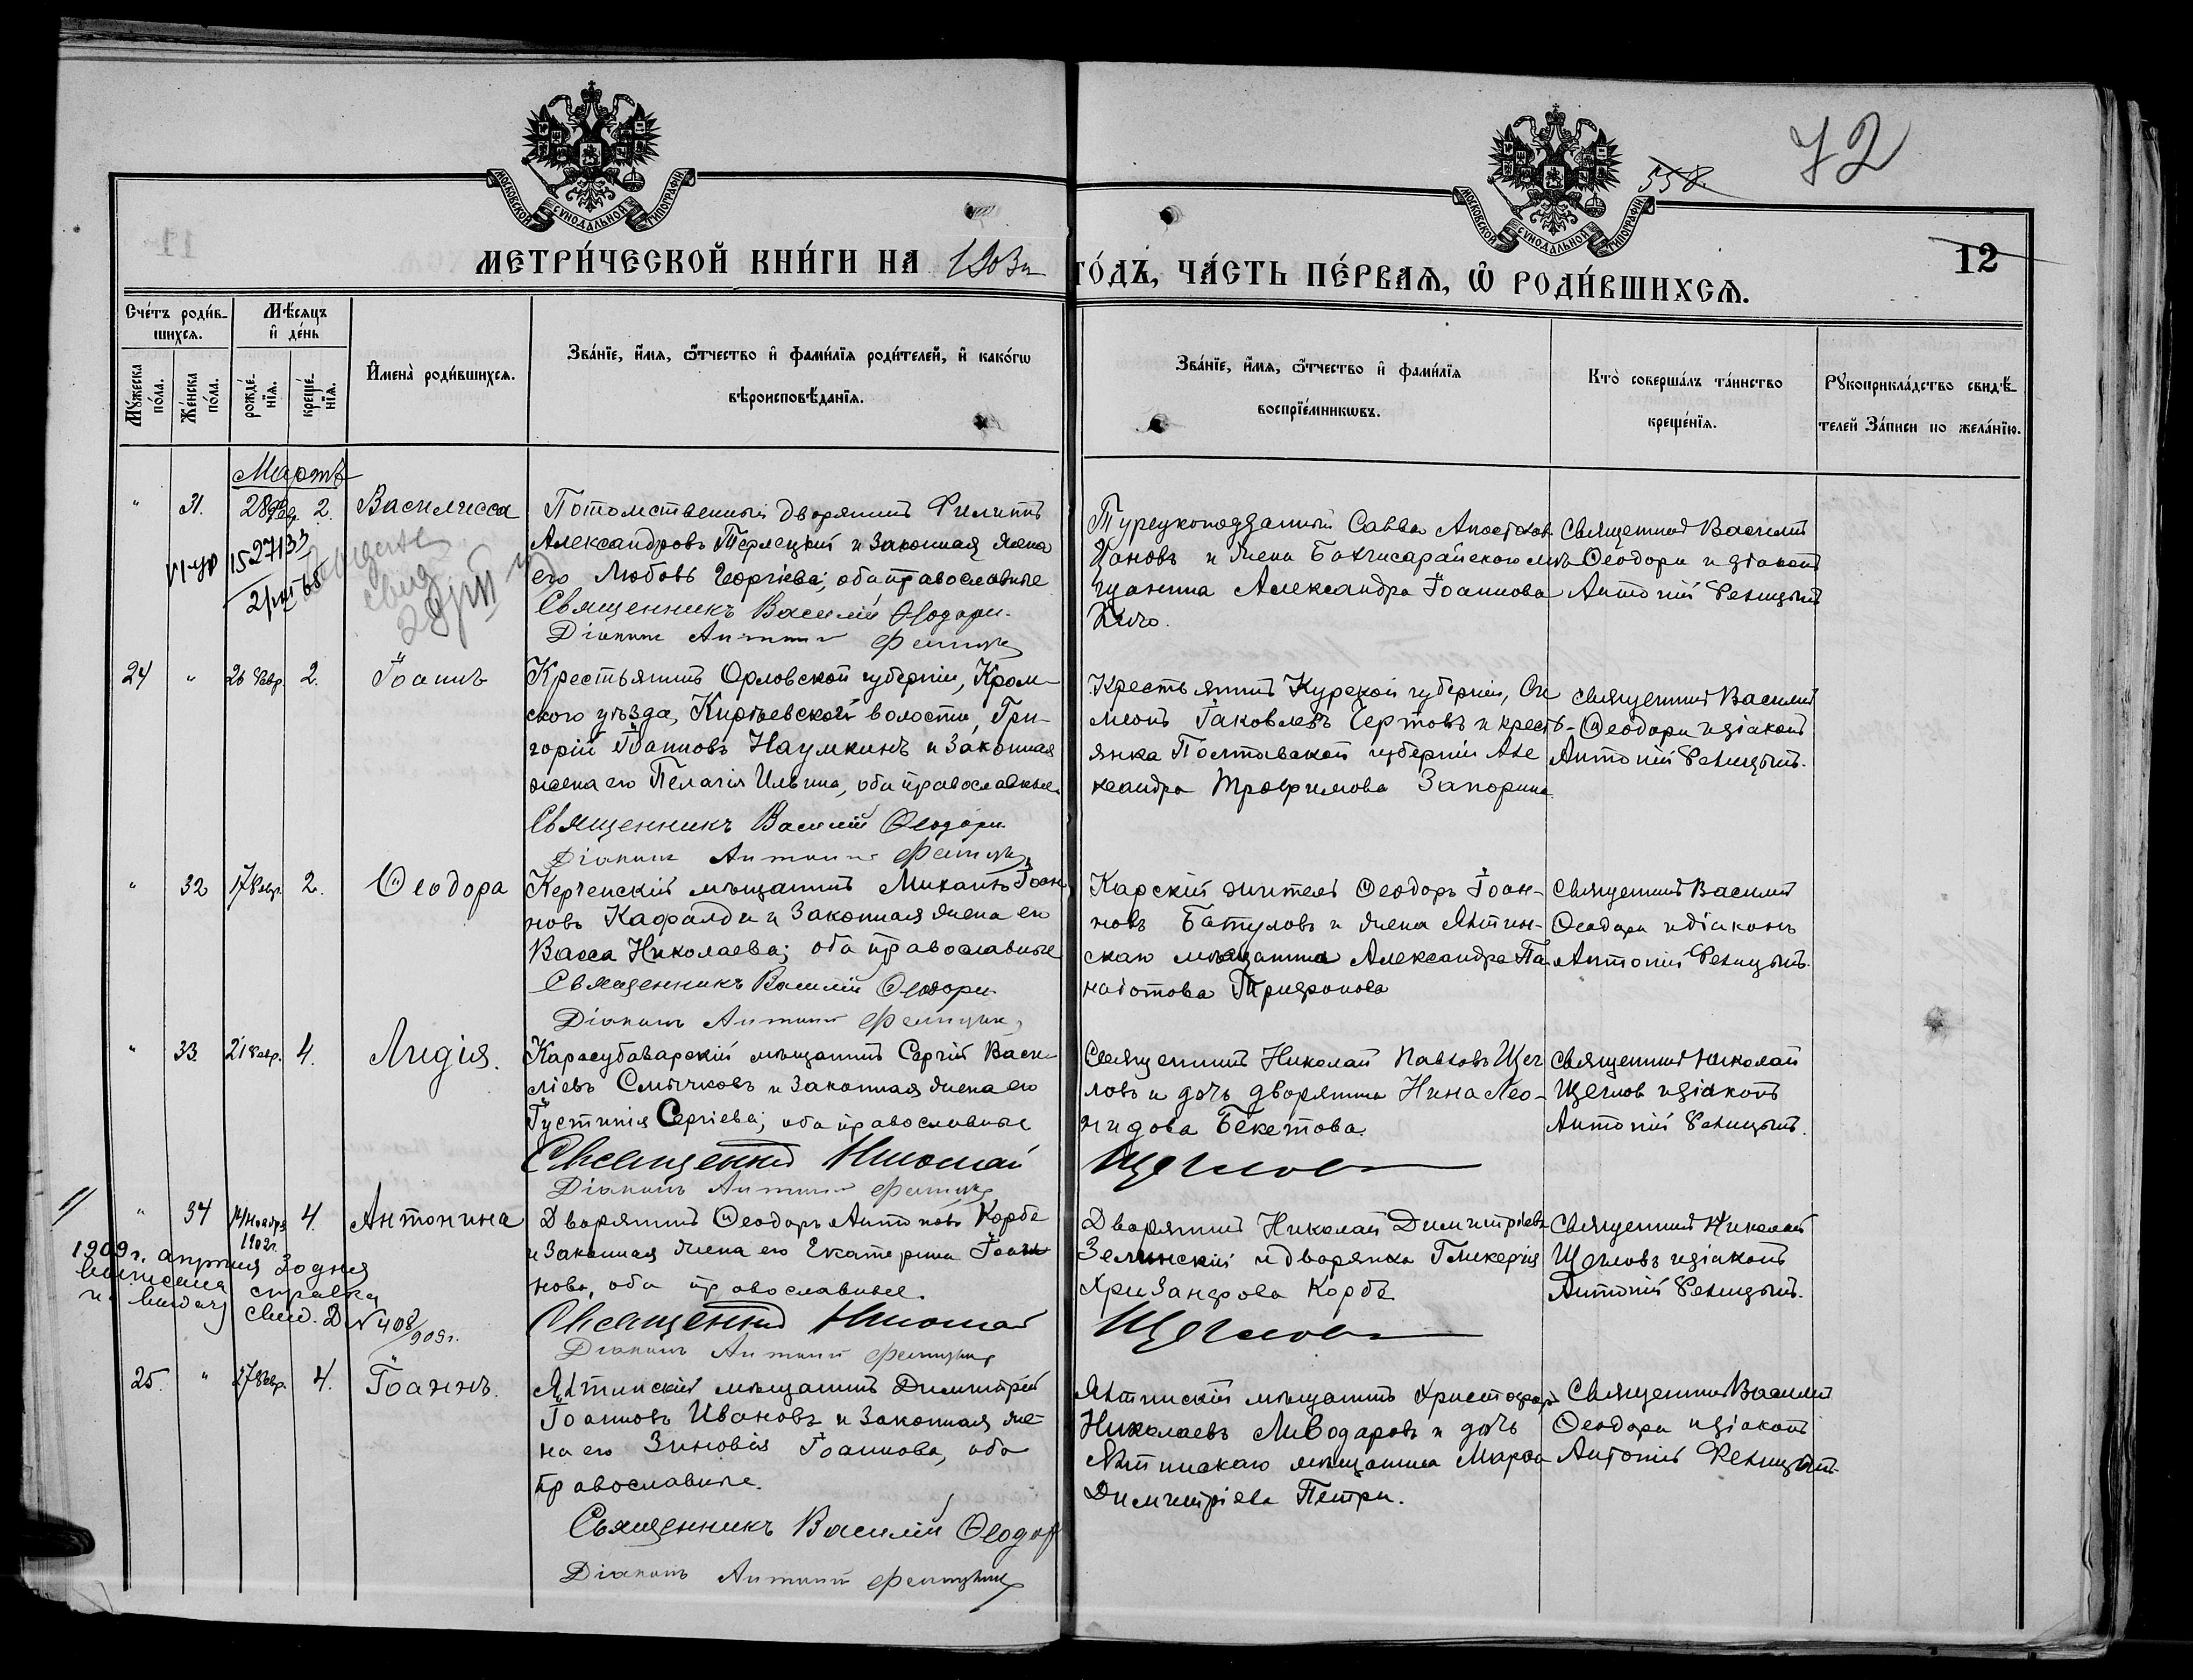 72
558.
12
МОСКОВСКОЙ СѴНОДАЛЬНОЙ ТИПОГРАФІИ
МОСКОВСКОЙ СѴНОДАЛЬНОЙ ТИПОГРАФІИ
МЕТРИ́ЧЕСКОЙ КНИ́ГИ НА 1903й
ГО́ДЪ, ЧА́СТЬ ПЕ́РВАѦ, Ѿ РОДИ́ВШИХСѦ.
Сче́тъ роди́в-
шихсѧ.
Му́жеска по́ла.
Же́нска по́ла.
Мѣ́сѧцъ и҆ де́нь
рожде́-нїѧ.
креще́-нїѧ.
И҆мена̀ роди́вшихсѧ.
Зва́нїе, и҆́мѧ, ѻ҆́тчество и҆ фами́лїѧ роди́телей, и҆ како́гѡ
вѣроисповѣ́данїѧ.
Зва́нїе, и҆́мѧ, ѻ҆́тчество и҆ фами́лїѧ
воспрїе́мникѡвъ.
Кто̀ соверша́лъ та́инство
креще́нїѧ.
Рꙋкоприкла́дство свидѣ́-
телей за́писи по жела́нїю.
Мартъ
" 31. 28 Фев. 2. Василисса
Потомственный дворянинъ Филиппъ
Александровъ Терлецкій и законная жена
его Любовь Георгіева; оба православные
Священникъ Василій Ѳеодори.
Діаконъ Антоній
Турецкоподданный Савва Апостолов
и жена Бахчисарайскаго мѣ-
щанина Александра Іоаннова
Священникъ Василій
Ѳеодори и діаконъ
Антоній
1527133
свид.
24 " 26 Февр. 2. Іоаннъ
Крестьянинъ Орловской губерніи, Кром-
ского уѣзда, Кирѣевской волости, Гри-
горій Іоанновъ Наумкинъ и законная
жена его Пелагія Ильина, оба православные.
Священникъ Василій Ѳеодори.
Діаконъ Антоній
Крестьянинъ Курской губерніи, Си
меонъ Іаковлевъ Чертовъ и кресть-
янка Полтавской губерніи Але
ксандра Трофимова Запорина.
Священникъ Василій
Ѳеодори и діаконъ
Антоній
" 32 17 Февр. 2. Ѳеодора
Керченскій мѣщанинъ Михаилъ Іоан
новъ Кафалди и законная жена его
Васса Николаева; оба православные
Священникъ Василій Ѳеодори
Діаконъ Антоній
Карскій житель Ѳеодоръ Іоан-
новъ Батуловъ и жена Ялтин-
скаго мѣщанина Александра Па-
наіотова Трифонова
Священникъ Василій
Ѳеодори и діаконъ
Антоній
" 33 21 Февр. 4. Лидія.
Карасубазарскій мѣщанинъ Сергій Васи-
ліевъ Смычковъ и законная жена его
Іустинія Сергіева; оба православные
Священникъ Николай Щегловъ
Діаконъ Антоній
Священникъ Николай Павловъ Щег
ловъ и дочь дворянина Нина Лео-
нидова Бекетова.
Священникъ Николай
Щегловъ и діаконъ
Антоній
" 34 14 Ноября 1902 г. 4. Антонина
Дворянинъ Ѳеодоръ Антоновъ Корбе
и законная жена его Екатерина Іоан
нова, оба православные.
Священникъ Николай Щегловъ
Діаконъ Антоній
Дворянинъ Николай Димитріевъ
Зелинскій и дворянка Гликерія
Хрисанфова Корбе
Священникъ Николай
Щегловъ и діаконъ
Антоній
1909 г. апрѣля 30 дня
выписана справка
и выдачу свид. № 408/909 г.
25. " 27 Февр. 4. Іоаннъ.
Ялтинскій мѣщанинъ Димитрій
Іоанновъ Ивановъ и законная же-
на его Зиновія Іоаннова, оба
православные.
Священникъ Василій Ѳеодори
Діаконъ Антоній
Ялтинскій мѣщанинъ Христофоръ
Николаевъ Ливодаровъ и дочь
Ялтинскаго мѣщанина Марѳа
Димитріева Петри.
Священникъ Василій
Ѳеодори и діаконъ
Антоній